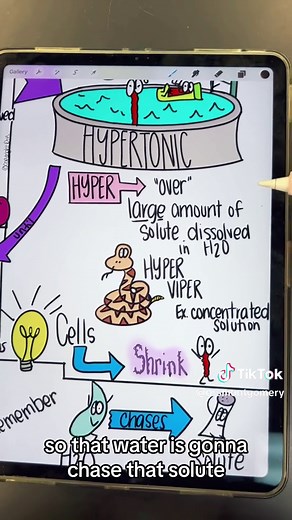 Gallery
HYPERTONIC
HYPER
"over"
large amount of
solute dissolved
in H2O
HYPER
VIPER
Ex. concentrated
solution
Cells
Shrink
TikTok
chases
H2O
solute
so that water is gonna
chase that solute